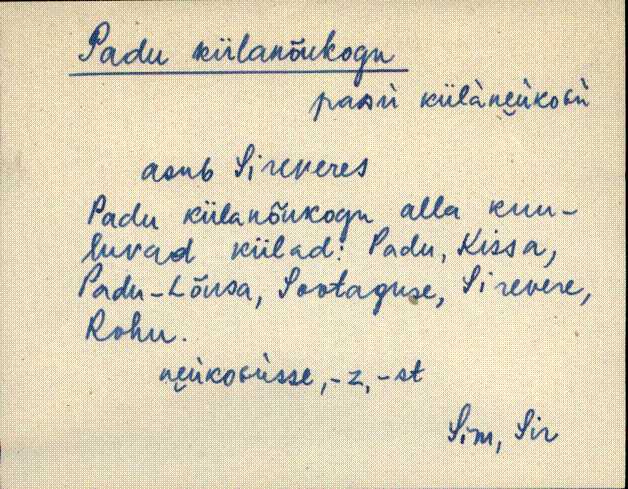 Padu külanõukogu
asub Sireveres
Padu külanõukogu alla kuu-
luvad külad: Padu, Kissa,
Padu-Lõusa, Sootaguse, Sirevere,
Rohu.
-z, -st
Sim, Sir